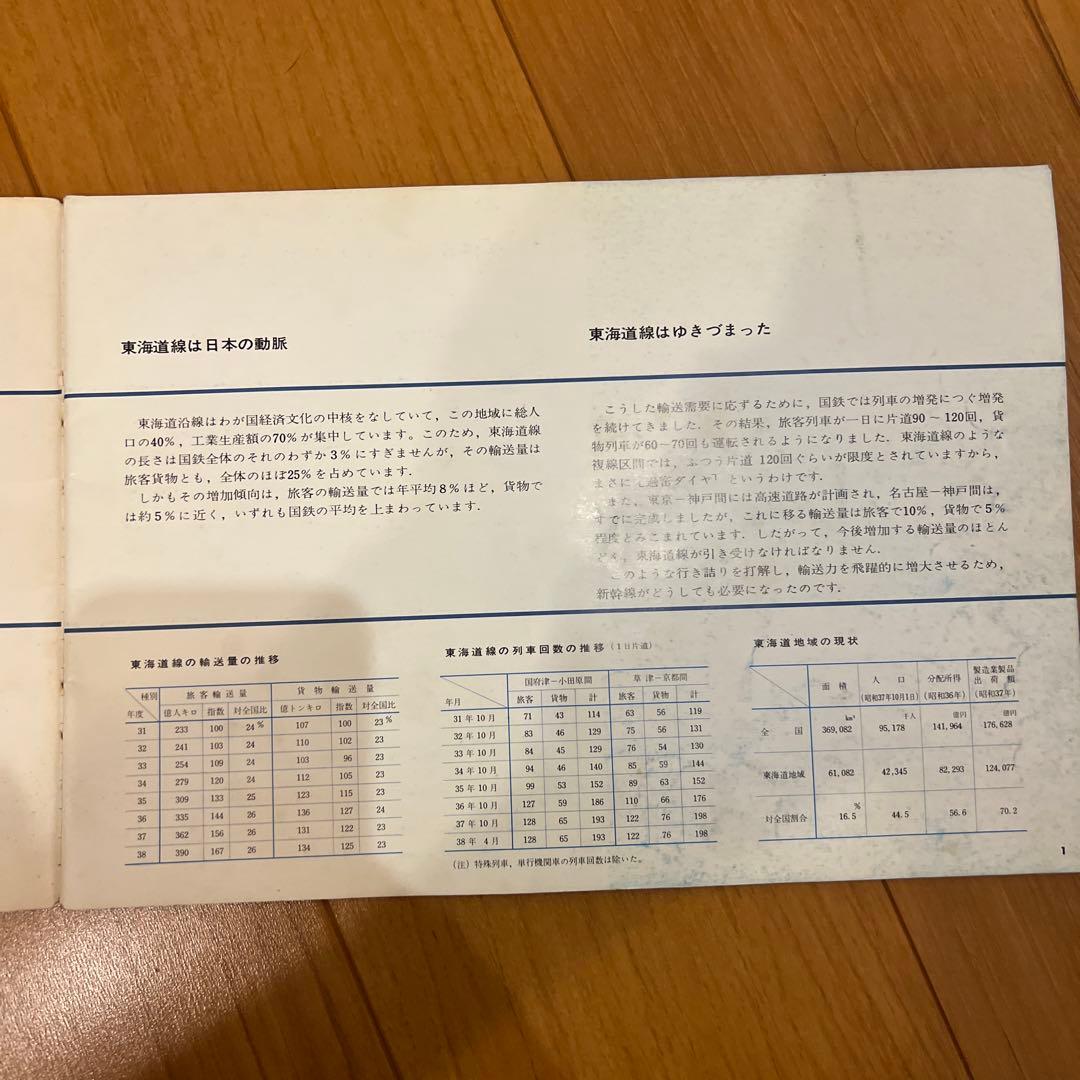 東海道線は日本の動脈
東海道沿線はわが国経済文化の中核をなしていて，この地域に総人
口の40％，工業生産額の70％が集中しています．このため，東海道線
の長さは国鉄全体のそれのわずか3％にすぎませんが，その輸送量は
旅客貨物とも，全体のほぼ25％を占めています．
しかもその増加傾向は，旅客の輸送量では年平均8％ほど，貨物で
は約5％に近く，いずれも国鉄の平均を上まわっています．
東海道線はゆきづまった
こうした輸送需要に応ずるために，国鉄では列車の増発につぐ増発
を続けてきました．その結果，旅客列車が一日に片道90～120回，貨
物列車が60～70回も運転されるようになりました．東海道線のような
複線区間では，ふつう片道 120回ぐらいが限度とされていますから，
まさに「過密ダイヤ」というわけです．
また，東京－神戸間には高速道路が計画され，名古屋－神戸間は，
すでに完成しましたが，これに移る輸送量は旅客で10％，貨物で5％
程度とみこまれています．したがって，今後増加する輸送量のほとん
どを，東海道線が引き受けなければなりません．
このような行き詰りを打解し，輸送力を飛躍的に増大させるため，
新幹線がどうしても必要になったのです．
東海道線の輸送量の推移
種別 旅客輸送量 貨物輸送量
年度 億人キロ 指数 対全国比 億トンキロ 指数 対全国比
31 233 100 24％ 107 100 23％
32 241 103 24 110 102 23
33 254 109 24 103 96 23
34 279 120 24 112 105 23
35 309 133 25 123 115 23
36 335 144 26 136 127 24
37 362 156 26 131 122 23
38 390 167 26 134 125 23
東海道線の列車回数の推移（1日片道）
年月 国府津－小田原間 草津－京都間
旅客 貨物 計 旅客 貨物 計
31年10月 71 43 114 63 56 119
32年10月 83 46 129 75 56 131
33年10月 84 45 129 76 54 130
34年10月 94 46 140 85 59 144
35年10月 99 53 152 89 63 152
36年10月 127 59 186 110 66 176
37年10月 128 65 193 122 76 198
38年 4月 128 65 193 122 76 198
（注）特殊列車，単行機関車の列車回数は除いた。
東海道地域の現状
面積 人口（昭和37年10月1日） 分配所得（昭和36年） 製造業製品出荷額（昭和37年）
km² 千人 億円 億円
全国 369,082 95,178 141,964 176,628
東海道地域 61,082 42,345 82,293 124,077
対全国割合 16.5％ 44.5 56.6 70.2
1